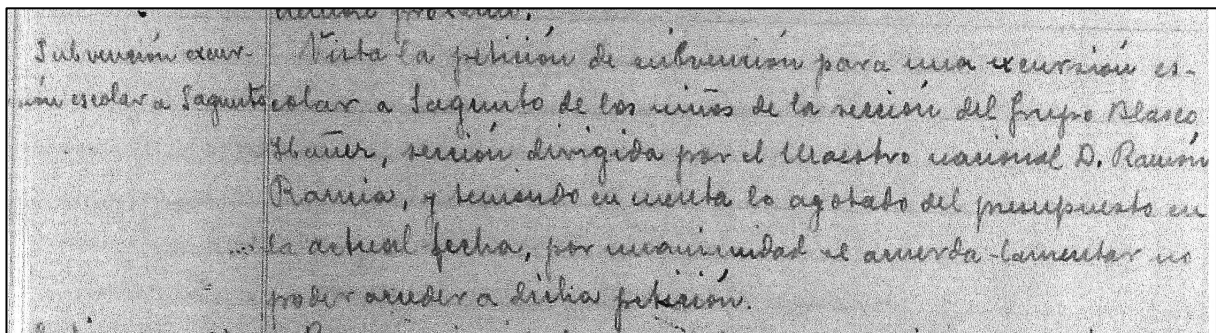 Subvención excur-
sión escolar a Sagunto
Vista la petición de subvención para una excursión es-
colar a Sagunto de los niños de la sección del Grupo Blasco
Ibañez, sección dirigida por el Maestro nacional D. Ramón
Ramia, y teniendo en cuenta lo agotado del presupuesto en
la actual fecha, por unanimidad se acuerda lamentar no
poder acceder a dicha petición.